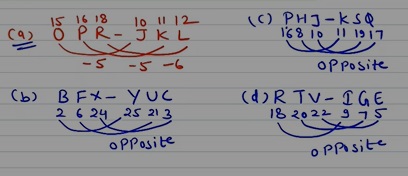 15 16 18 10 11 12
(a) O P R - J K L
-5 -5 -6
(b) B F X - Y U C
2 6 24 25 21 3
opposite
(c) P H J - K S Q
16 8 10 11 19 17
opposite
(d) R T V - I G E
18 20 22 9 7 5
opposite